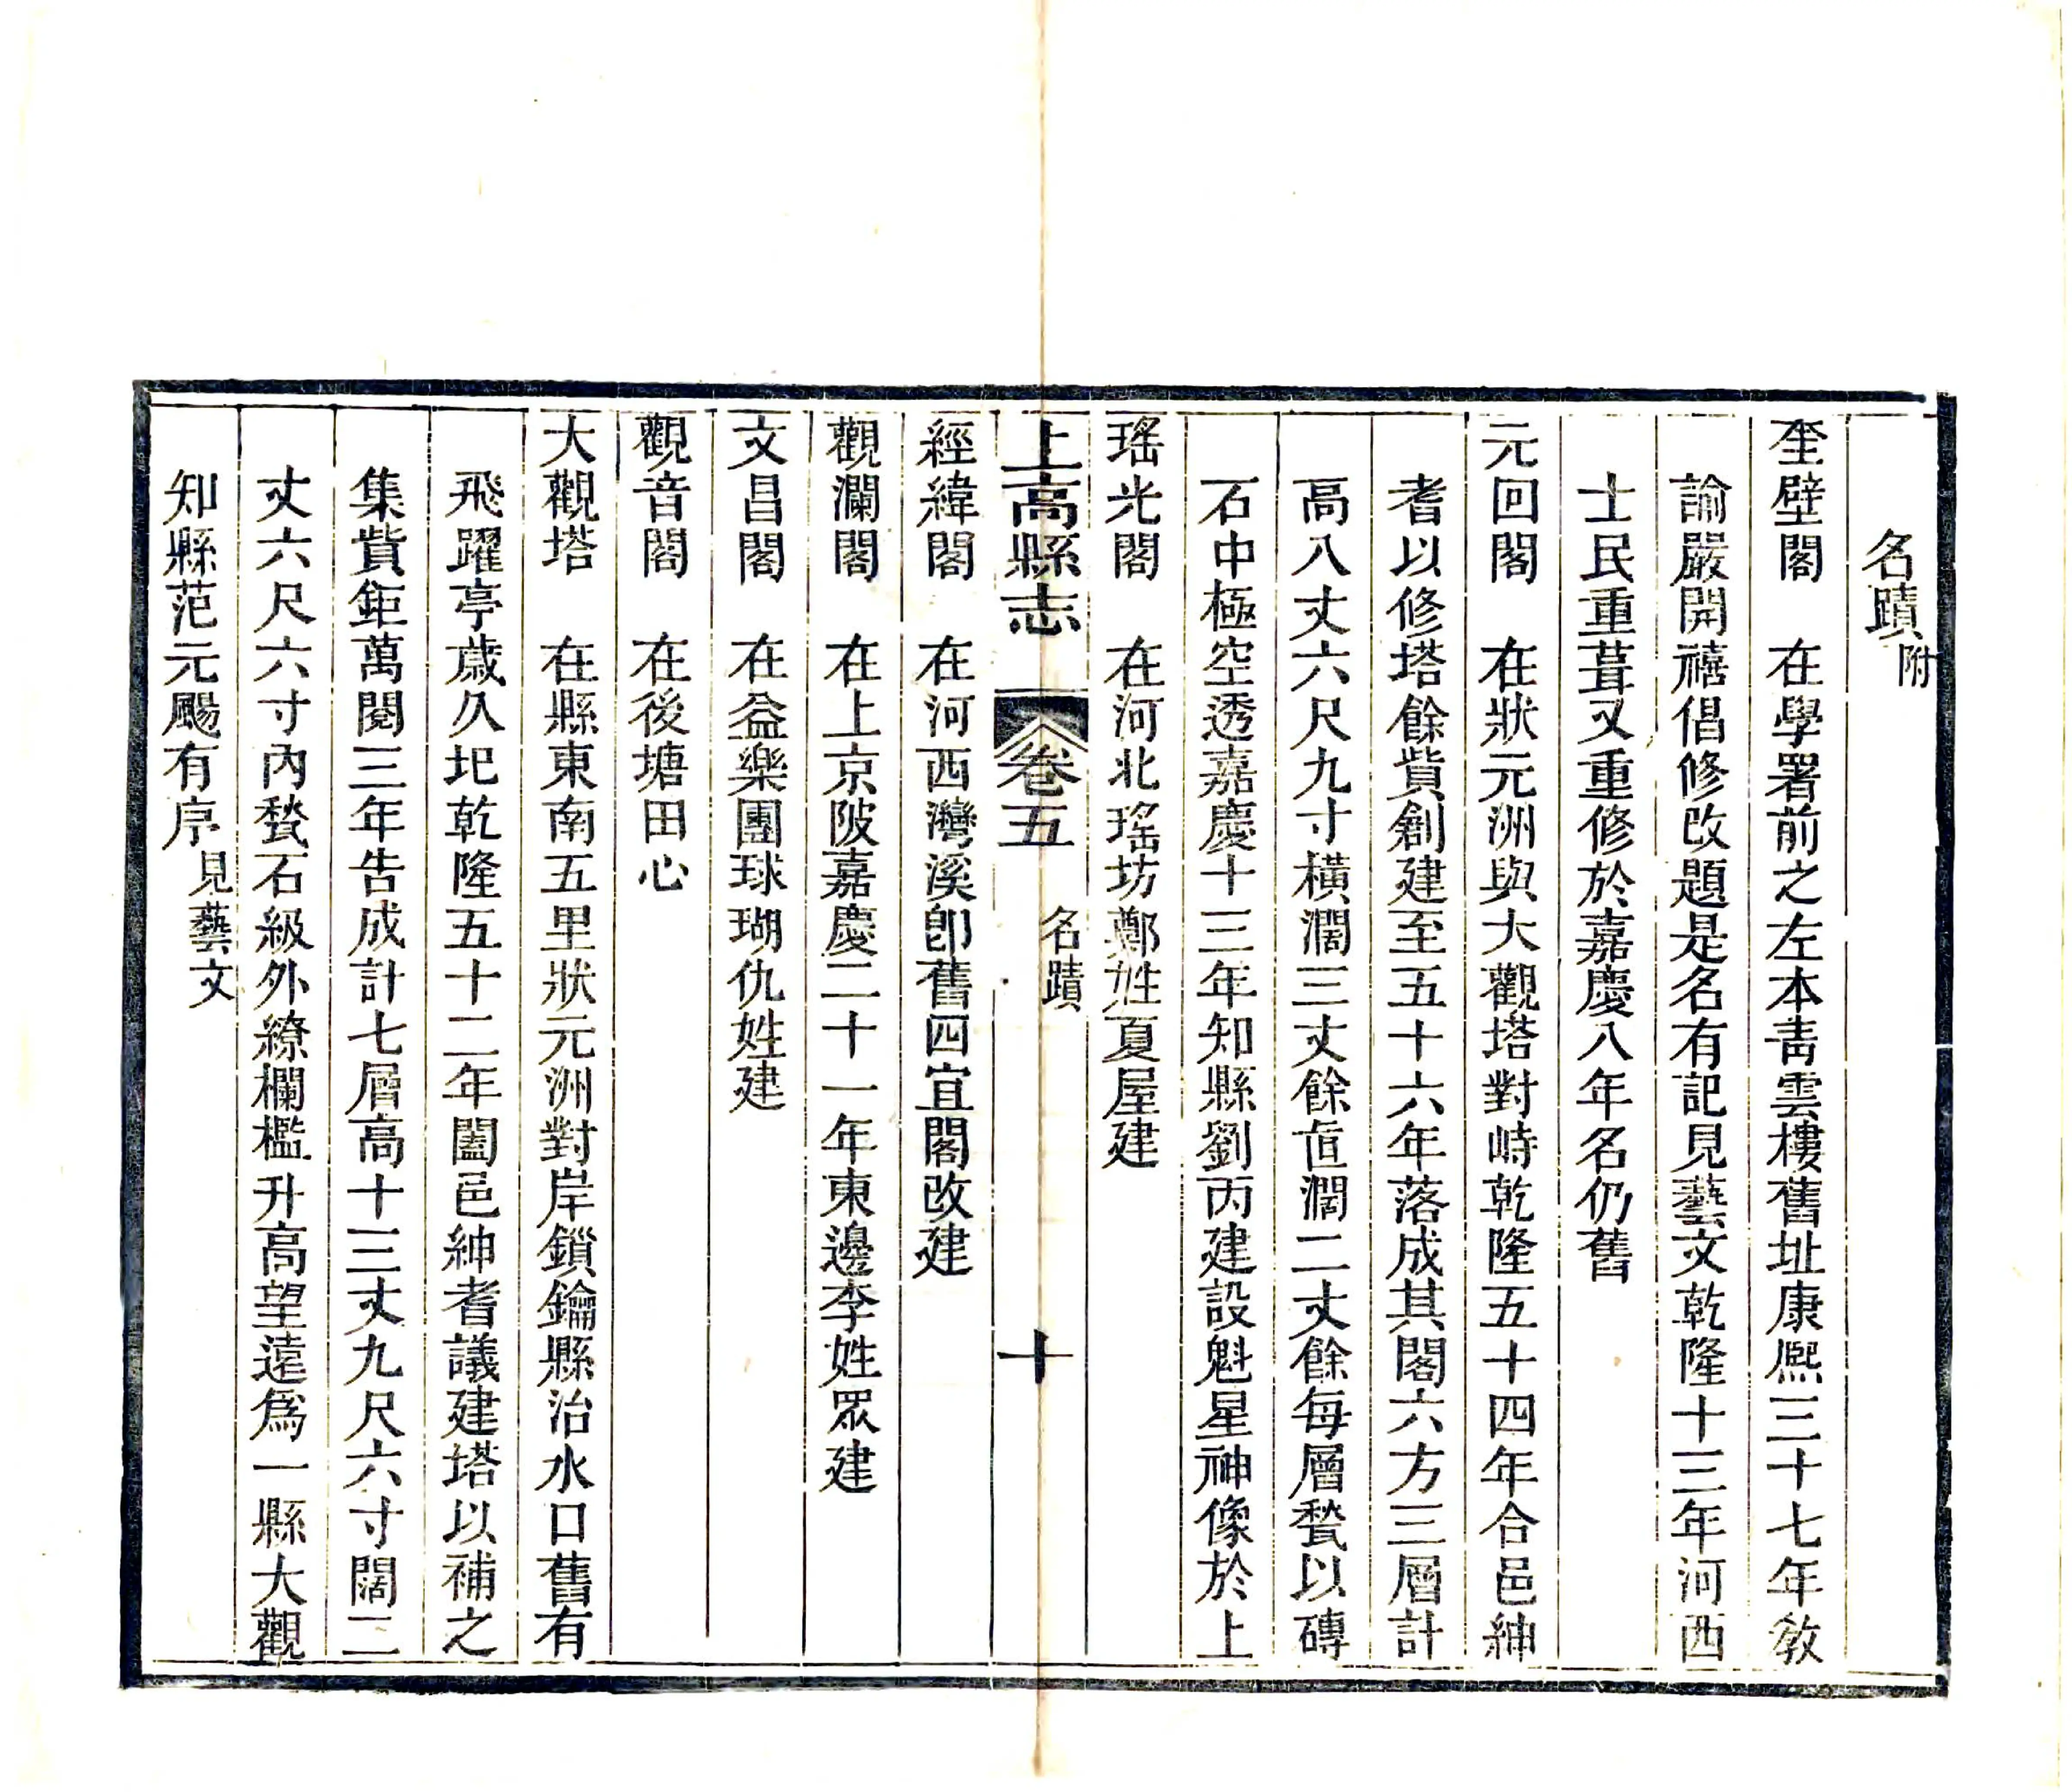 名蹟附
奎壁閣　在學署前之左本青雲樓舊址康熈三十七年敎
諭嚴開禧倡修改題是名有記見藝文乾隆十三年河西
士民重葺又重修於嘉慶八年名仍舊
元回閣　在狀元洲與大觀塔對峙乾隆五十四年合邑紳
耆以修塔餘貲創建至五十六年落成其閣六方三層計
高八丈六尺九寸橫濶三丈餘亘濶二丈餘每層甃以磚
石中極空透嘉慶十三年知縣劉丙建設魁星神像於上
瑤光閣　在河北瑤坊鄭姓夏屋建
上高縣志　卷五　名蹟　十
經緯閣　在河西灣溪卽舊四宜閣改建
觀瀾閣　在上京陂嘉慶二十一年東邊李姓眾建
文昌閣　在益樂團球瑚仇姓建
觀音閣　在後塘田心
大觀塔　在縣東南五里狀元洲對岸鎖鑰縣治水口舊有
飛躍亭歲久圮乾隆五十二年闔邑紳耆議建塔以補之
集貲鉅萬閱三年告成計七層高十三丈九尺六寸闊二
丈六尺六寸內甃石級外繚欄檻升高望遠爲一縣大觀
知縣范元颺有序見藝文